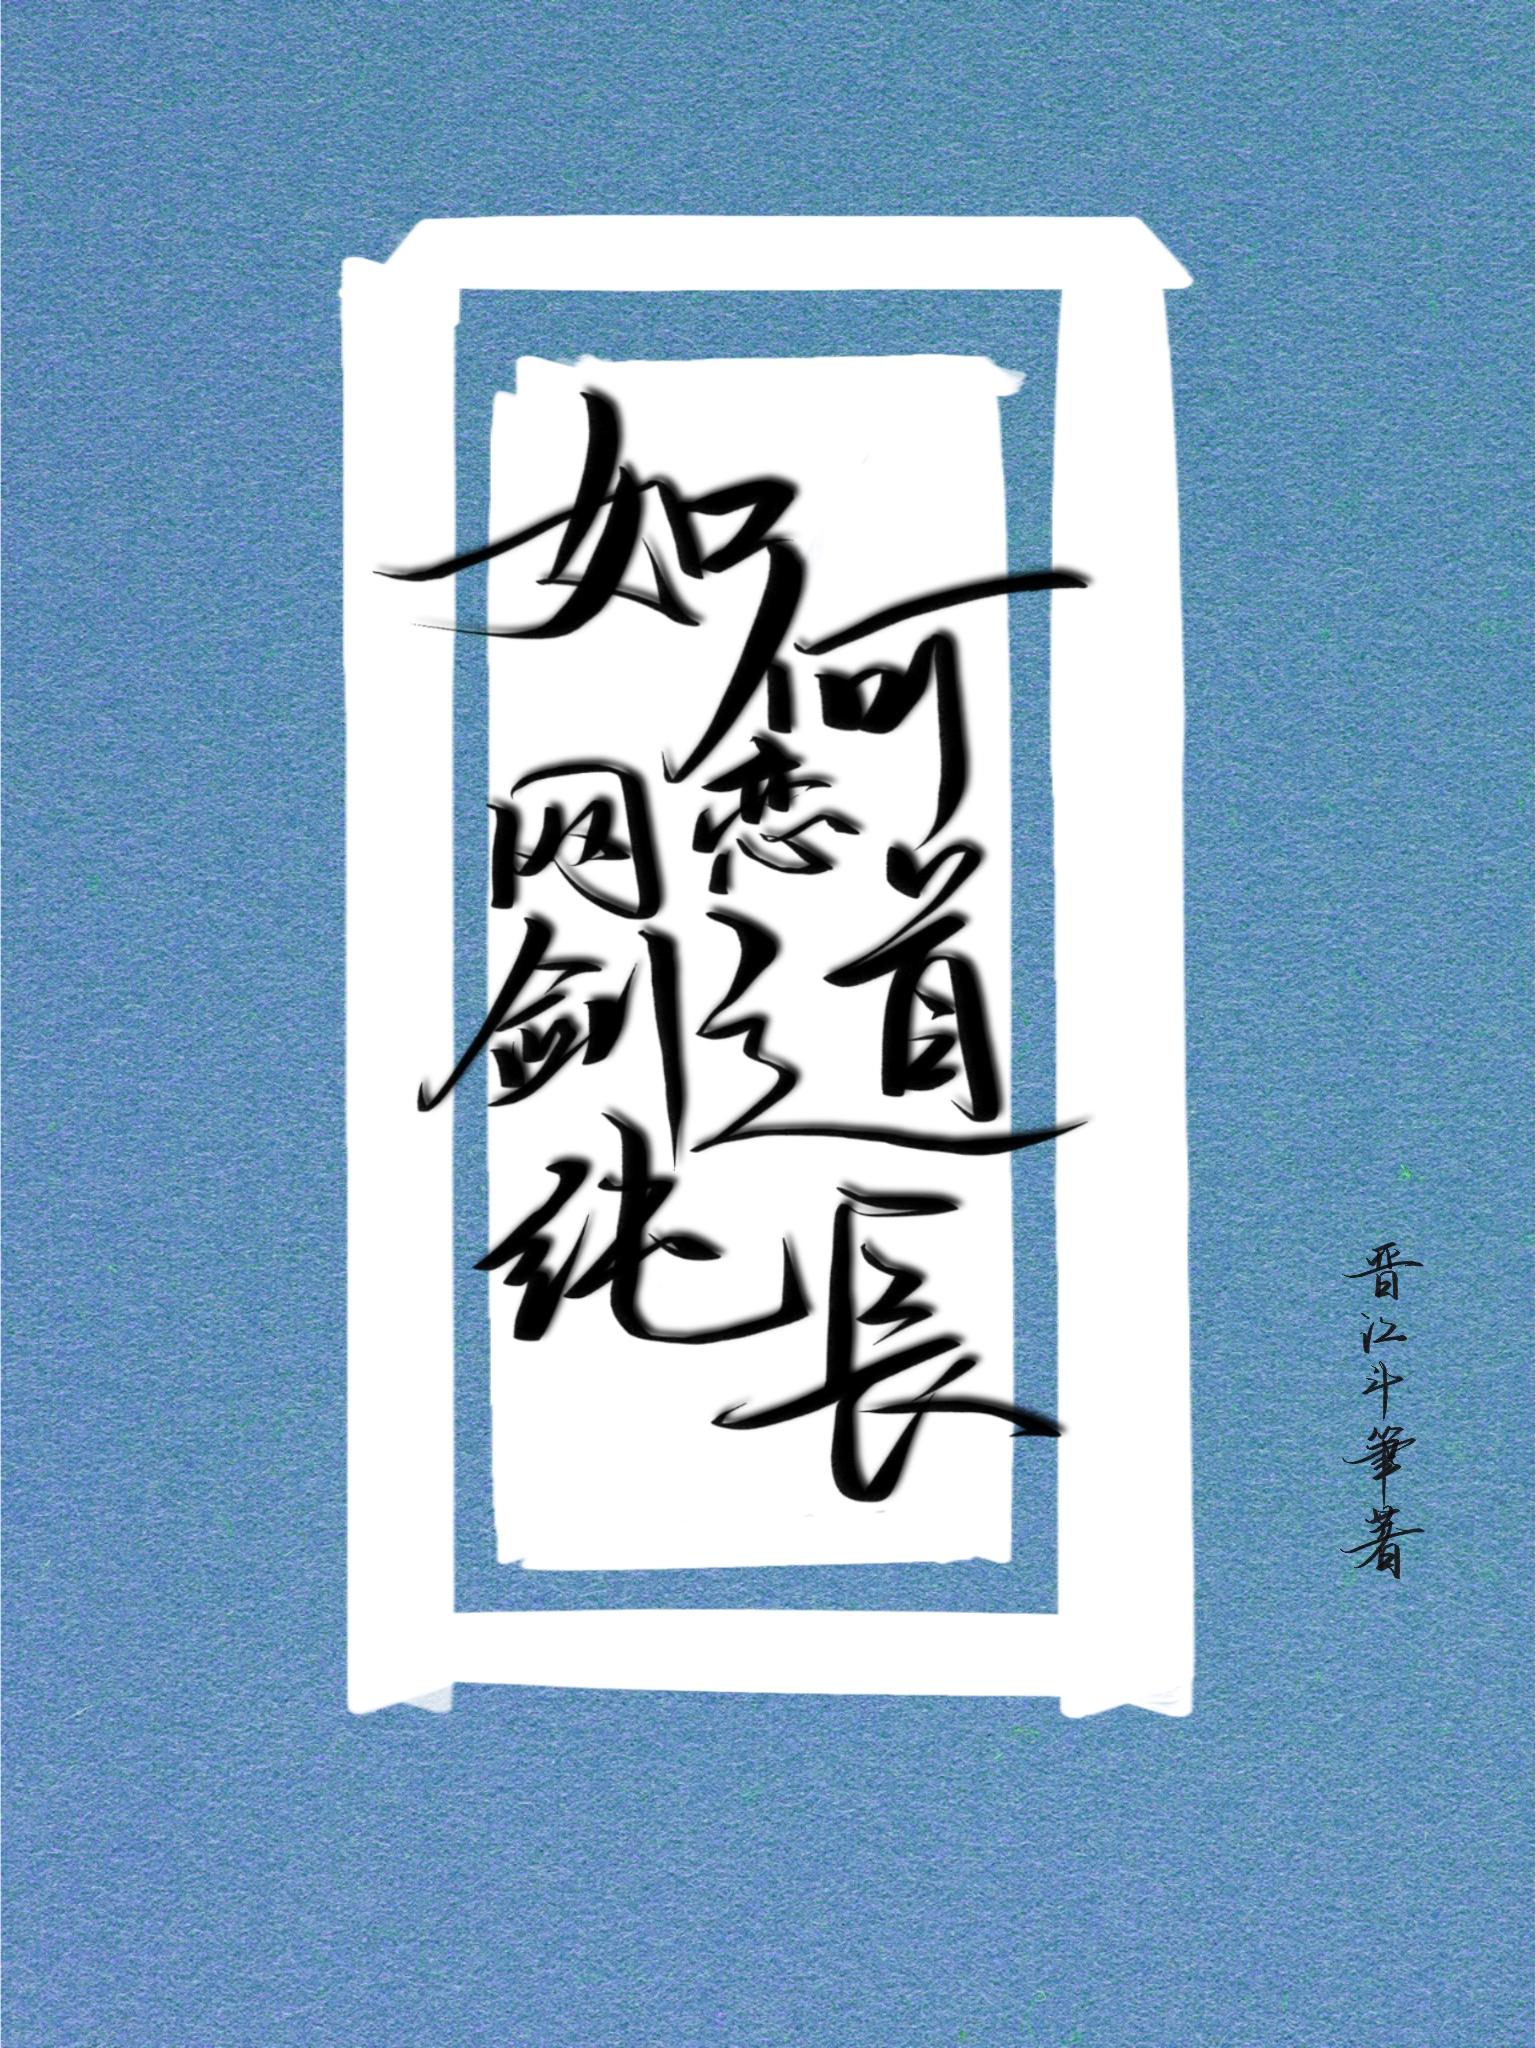 如何
网恋
剑纯
道長
晋江斗筆著